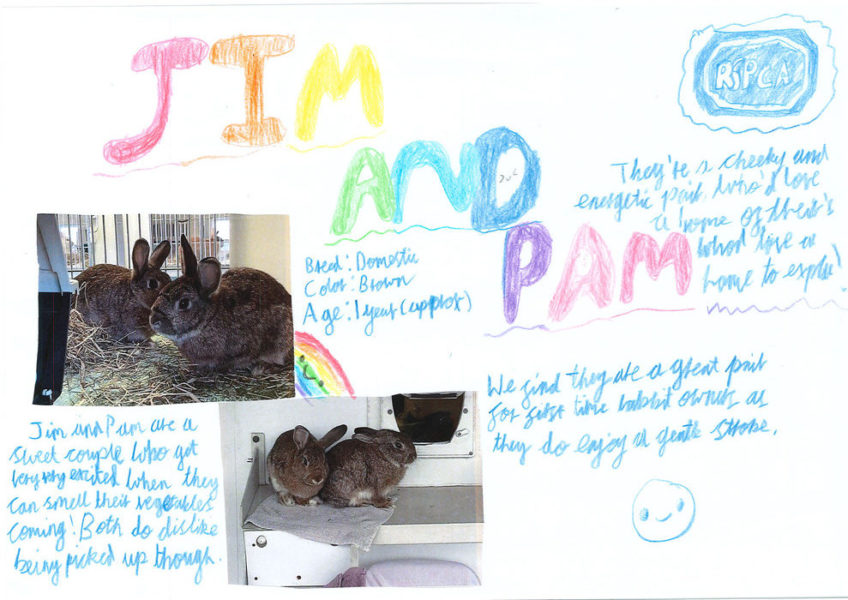 JIM
AND
PAM
RSPCA
They're a cheeky and
energetic pair. Who'd love
a home of their's
who'd love a
home to
Breed: Domestic
Color: Brown
Age: 1 year (approx)
We find they are a great pair
for first time rabbit owners as
they do enjoy a gentle stroke.
Jim and Pam are a
sweet couple who get
very very excited when they
can smell their vegetables
coming! Both do dislike
being picked up though.